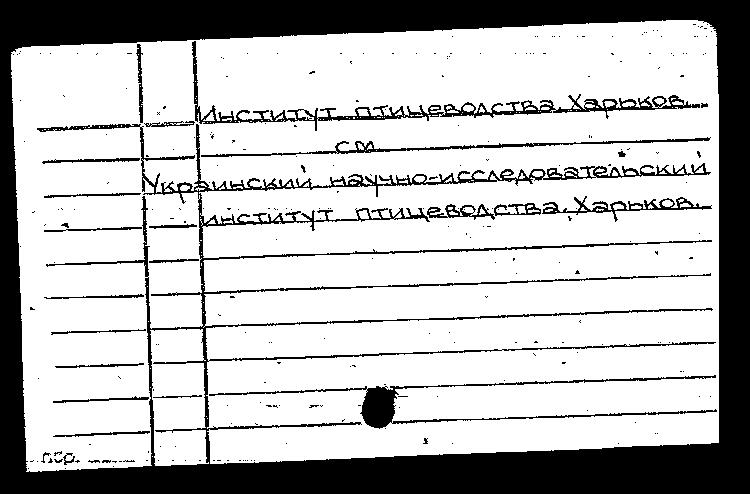 Институт птицеводства. Харьков.
см
Украинский научно-исследовательский
институт птицеводства. Харьков.